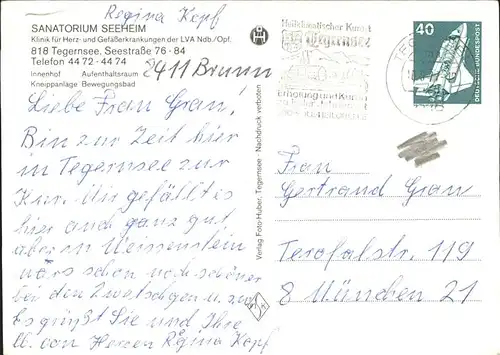 Regina Kopf
SANATORIUM SEEHEIM
Klinik für Herz- und Gefäßerkrankungen der LVA Ndb./Opf.
818 Tegernsee, Seestraße 76 - 84
Telefon 44 72 - 44 74
Innenhof Aufenthaltsraum
Kneippanlage Bewegungsbad
8411 Brunn
Liebe Frau Grau!
Bin zur Zeit hier
in Tegernsee zur
Kur. Mir gefällt es
hier auch ganz gut
aber in Weissenstein
wärs schon noch schöner
bei den Zwetschgen u.
Es grüßt Sie und Ihre
ll. von Herzen Regina Kopf
Verlag Foto-Huber, Tegernsee - Nachdruck verboten
Heilklimatischer Kurort
Tegernsee
Erholung und Kur
40
DEUTSCHE BUNDESPOST
Frau
Gertraud Grau
Terofalstr. 119
8 München 21